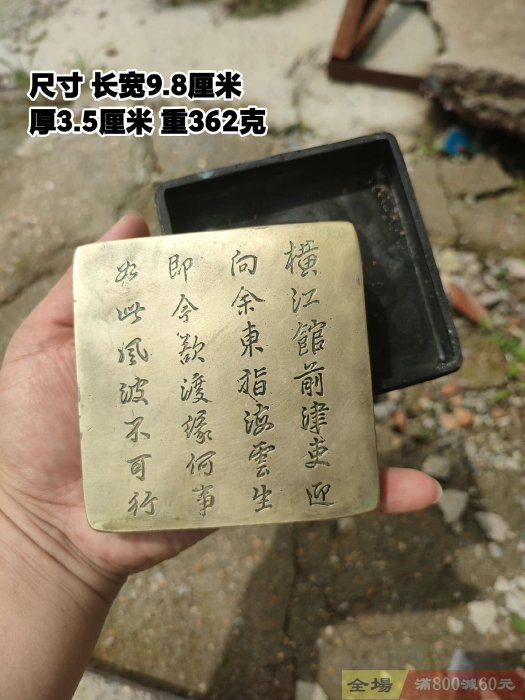 尺寸 长宽9.8厘米
厚3.5厘米 重362克
横江館前津吏迎
向余東指海雲生
即今欲渡緣何事
如此風波不可行
全場 滿800減60元